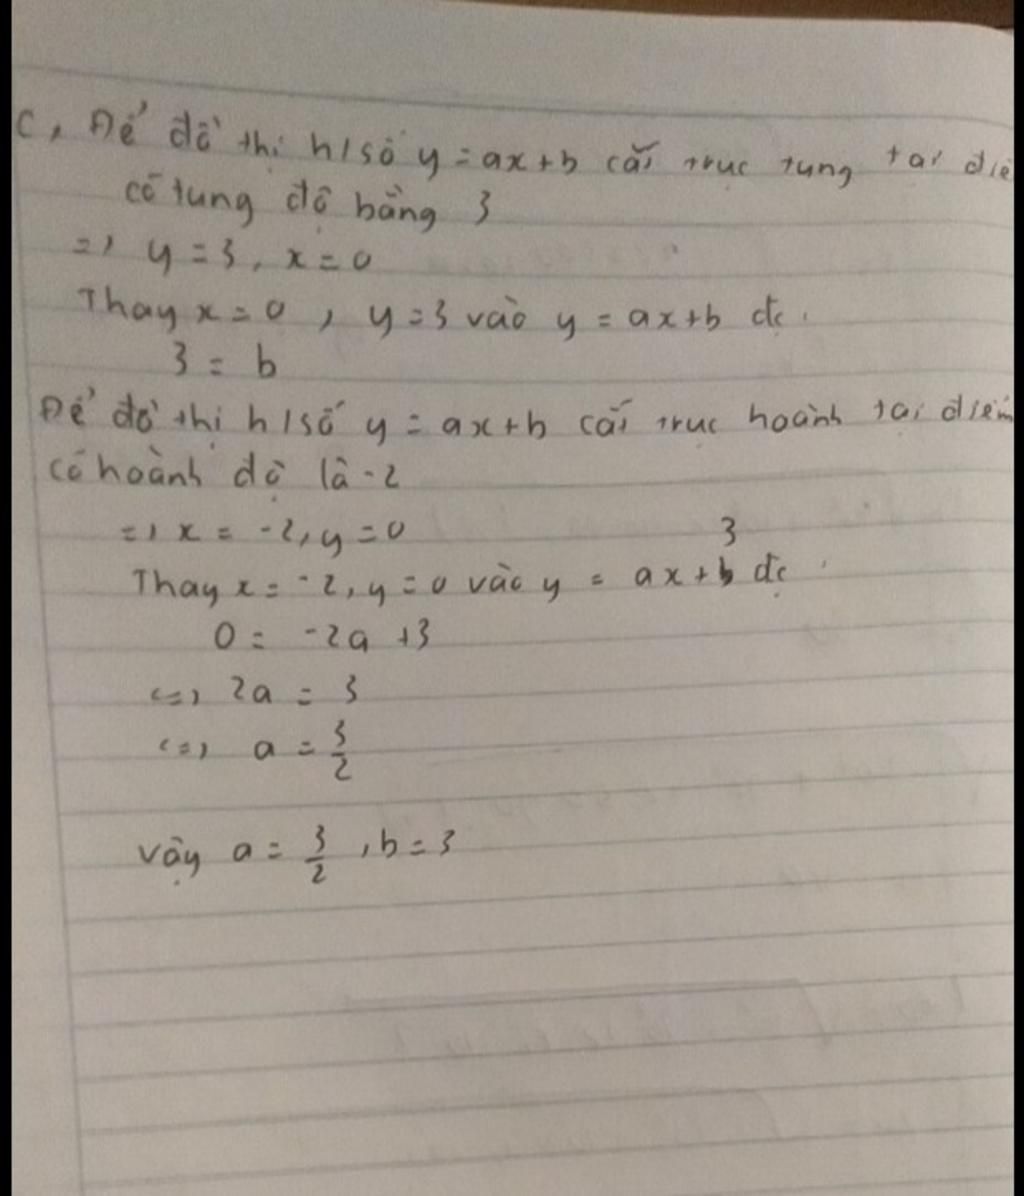 c, Để đồ thị h/số y = ax+b cắt trục tung tại điể
có tung độ bằng 3
=> y = 3, x = 0
Thay x = 0, y = 3 vào y = ax+b đc.
3 = b
Để đồ thị h/số y = ax+b cắt trục hoành tại điểm
có hoành độ là -2
=> x = -2, y = 0
Thay x = -2, y = 0 vào y = ax+3 đc
0 = -2a +3
<=> 2a = 3
<=> a = 3/2
Vậy a = 3/2, b = 3